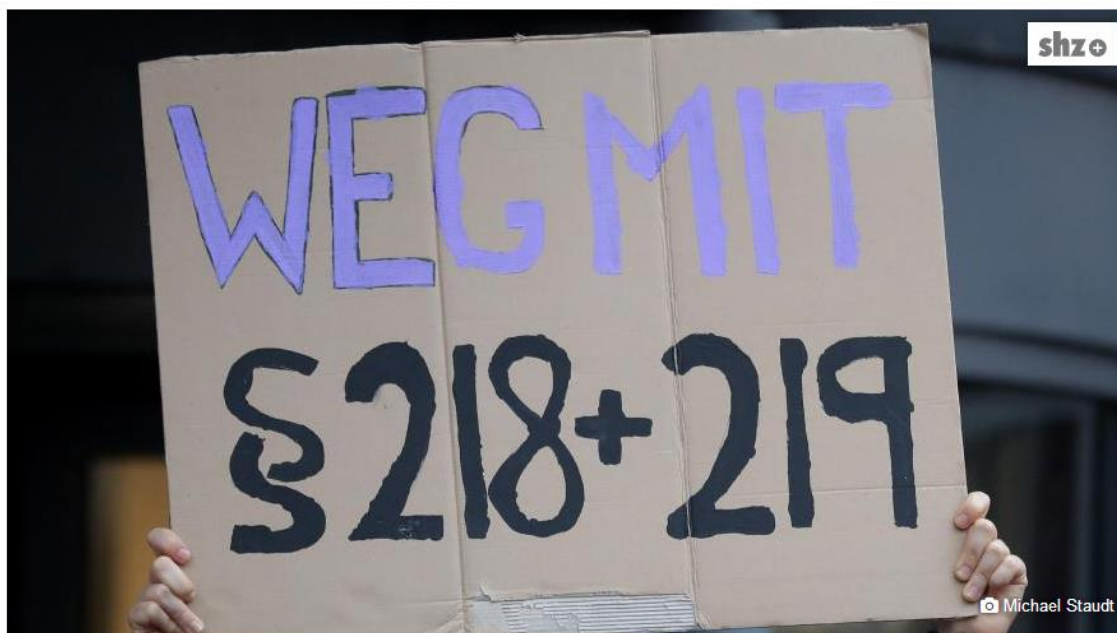 shz+
WEG MIT
§218+219
Michael Staudt